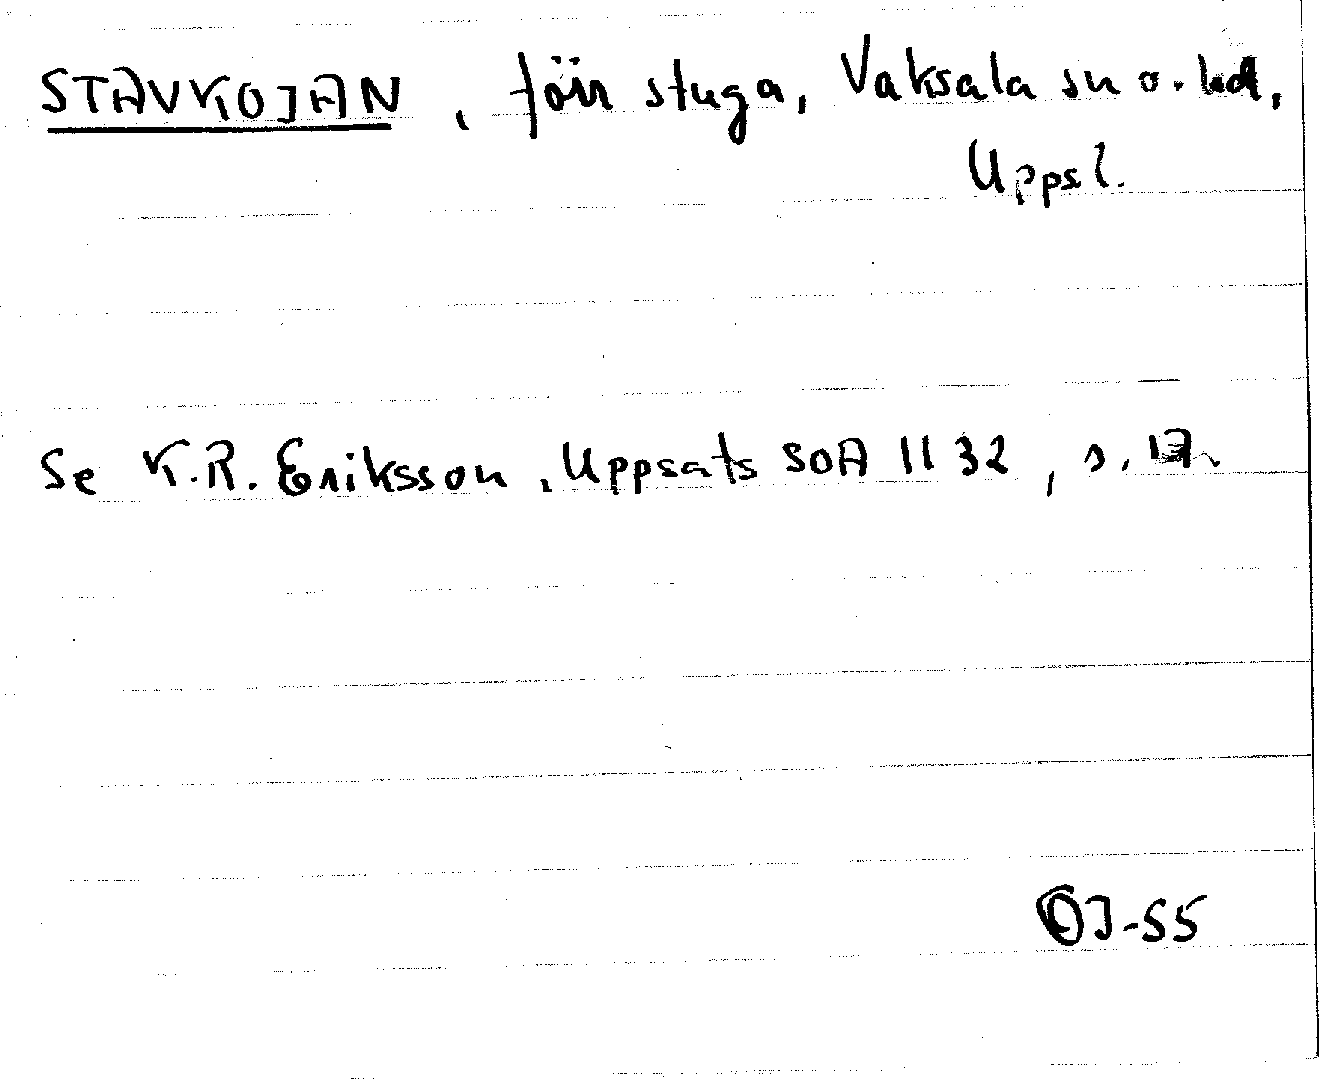 STAVKOJAN, förr stuga, Vaksala sn o. hd,
Uppsl.
Se K.R. Eriksson, Uppsats SOA 1132, s. 12.
OJ-55